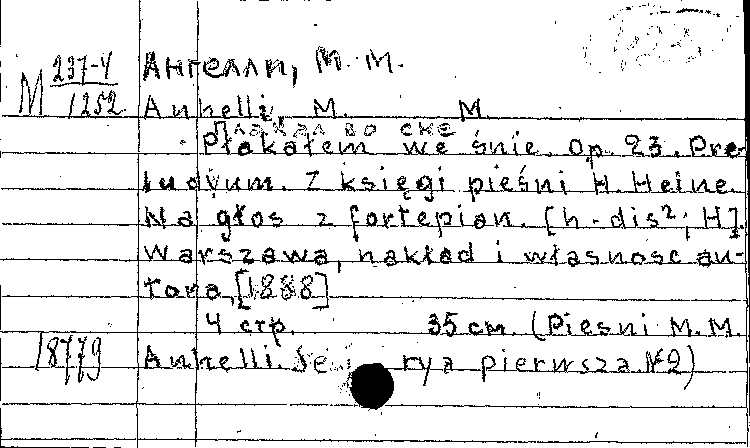 М 237-4/1252 Ангелли, М. М.
Anhelli, M. M.
Плакал во сне
Płakałem we śnie. Op. 23. Pre-
ludyum. Z księgi pieśni H. Heine.
Na głos z fortepian. [h-dis²; H].
Warszawa, nakład i własność au-
tora, [1888]
4 стр. 35 см. (Piesni M. M.
18779 Anhelli. Se rya pierwsza. №2)